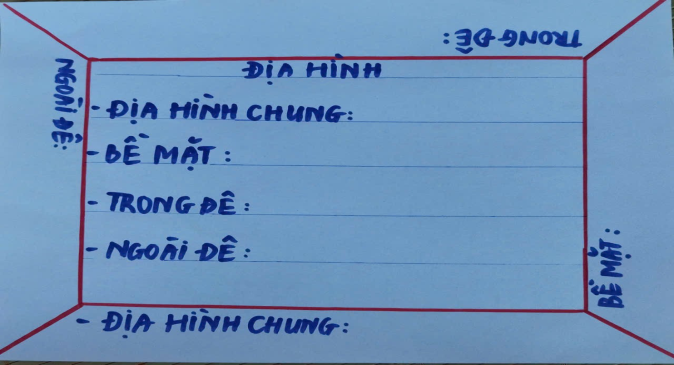 TRONG ĐÊ:
NGOÀI ĐÊ:
ĐỊA HÌNH
- ĐỊA HÌNH CHUNG:
- BỀ MẶT:
- TRONG ĐÊ:
- NGOÀI ĐÊ:
BỀ MẶT:
- ĐỊA HÌNH CHUNG: